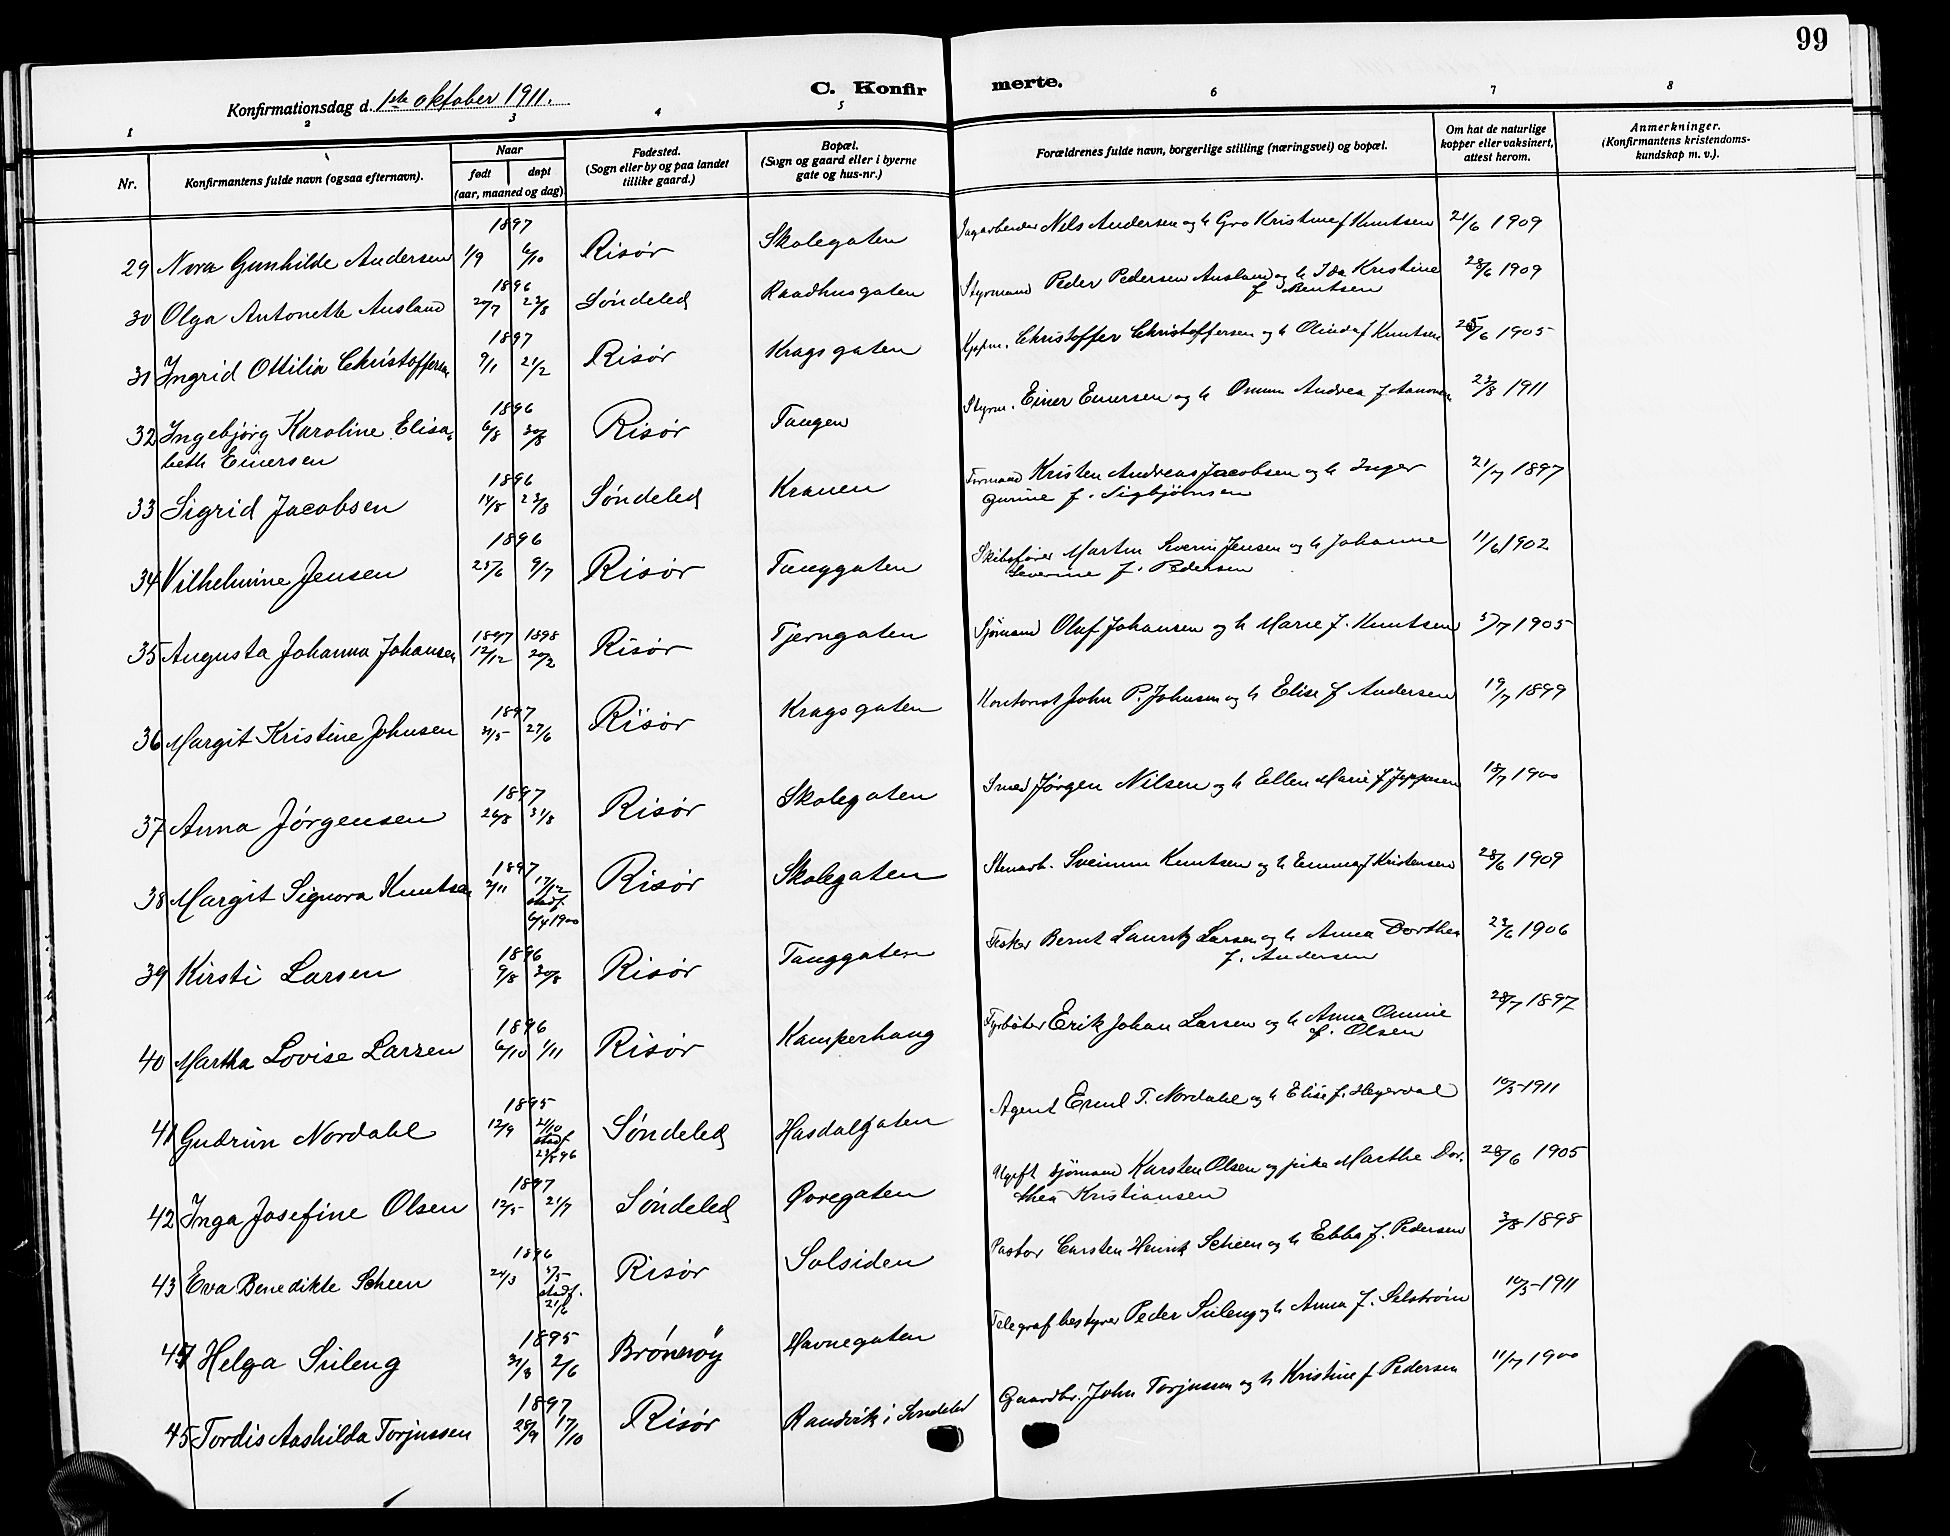 99
Konfirmationsdag d. 1ste oktober 1911.
C. Konfirmerte.
1 2 3 4 5 6 7 8
Nr. Konfirmantens fulde navn (ogsaa efternavn). Naar født døpt (aar, maaned og dag) Fødested. (Sogn eller by og paa landet tillike gaard.) Bopæl. (Sogn og gaard eller i byerne gate og hus-nr.) Forældrenes fulde navn, borgerlige stilling (næringsvei) og bopæl. Om hat de naturlige kopper eller vaksinert, attest herom. Anmerkninger. (Konfirmantens kristendoms-kundskap m. v.).
29 Nora Gunhilde Andersen 1897 1/9 6/10 Risør Skolegaten Nils Andersen og h Gro Kristine f Knutsen 21/6 1909
30 Olga Antonette Ausland 1896 20/7 23/8 Søndeled Raadhusgaten Styrmand Peder Pedersen Ausland og h Ida Kristine
f Bentsen 28/6 1909
31 Ingrid Ottilia Christoffersen 1897 9/1 21/2 Risør Kragsgaten Christoffer Christoffersen og h Olinda f Knutsen 25/6 1905
32 Ingebjørg Karoline Elisa-
beth Einersen 1896 6/8 30/8 Risør Tangen Styrm. Einer Einersen og h Omine Andrea f Aanonsen 23/8 1911
33 Sigrid Jacobsen 1896 14/8 23/8 Søndeled Kranen Formand Kristen Andreas Jacobsen og h Inger
Gurine f. Sigbjørnsen 21/7 1897
34 Vilhelmine Jensen 1896 25/6 9/7 Risør Tanggaten Skibsfører Martin Severin Jensen og h Johanne
Severine f. Pedersen 11/6 1902
35 Augusta Johanna Johansen 1897 12/12 1898 20/2 Risør Tjerngaten Sjømand Olaf Johansen og h Marie f. Knutsen 5/7 1905
36 Margit Kristine Johnsen 1897 31/5 27/6 Risør Kragsgaten Kontorist John P. Johnsen og h Elise f Andersen 19/7 1899
37 Anna Jørgensen 1897 26/8 31/8 Risør Skolegaten Smed Jørgen Nilsen og h Ellen Marie f Jeppesen 18/7 1900
38 Margit Signora Knutsen 1897 2/11 17/12 stadf. 6/4 1900 Risør Skolegaten Stenarb. Sveinum Knutsen og h Emma f Kristensen 28/6 1909
39 Kirsti Larsen 1896 9/8 30/8 Risør Tanggaten Fisker Bernt Lauritz Larsen og h Anna Dorthea
f. Andersen 23/6 1906
40 Martha Lovise Larsen 1896 6/10 1/11 Risør Kamperhaug Fyrbøter Erik Johan Larsen og h Anna Omine
f. Olsen 28/7 1897
41 Gudrun Nordahl 1895 12/9 21/10 stadf. 23/8 96 Søndeled Hasdalgaten Agent Emil T. Nordahl og h Elise f. Heyerdal 10/5 1911
42 Inga Josefine Olsen 1897 12/5 21/7 Søndeled Øvregaten Ugift sjømand Karsten Olsen og pike Marthe Dor-
thea Kristiansen 28/6 1905
43 Eva Benedikte Scheen 1896 24/3 3/5 stadf. 21/6 Risør Solsiden Pastor Carsten Henrik Scheen og h Ebba f. Pedersen 3/8 1898
44 Helga Suleng 1895 31/3 2/6 Brønnøy Havnegaten Telegrafbestyrer Peder Suleng og h Anna f. Selstrøm 10/5 1911
45 Tordis Aashilda Torjussen 1897 28/9 17/10 Risør Randvik i Søndeled Gaardbr. John Torjussen og h Kristine f Pedersen 11/7 1900